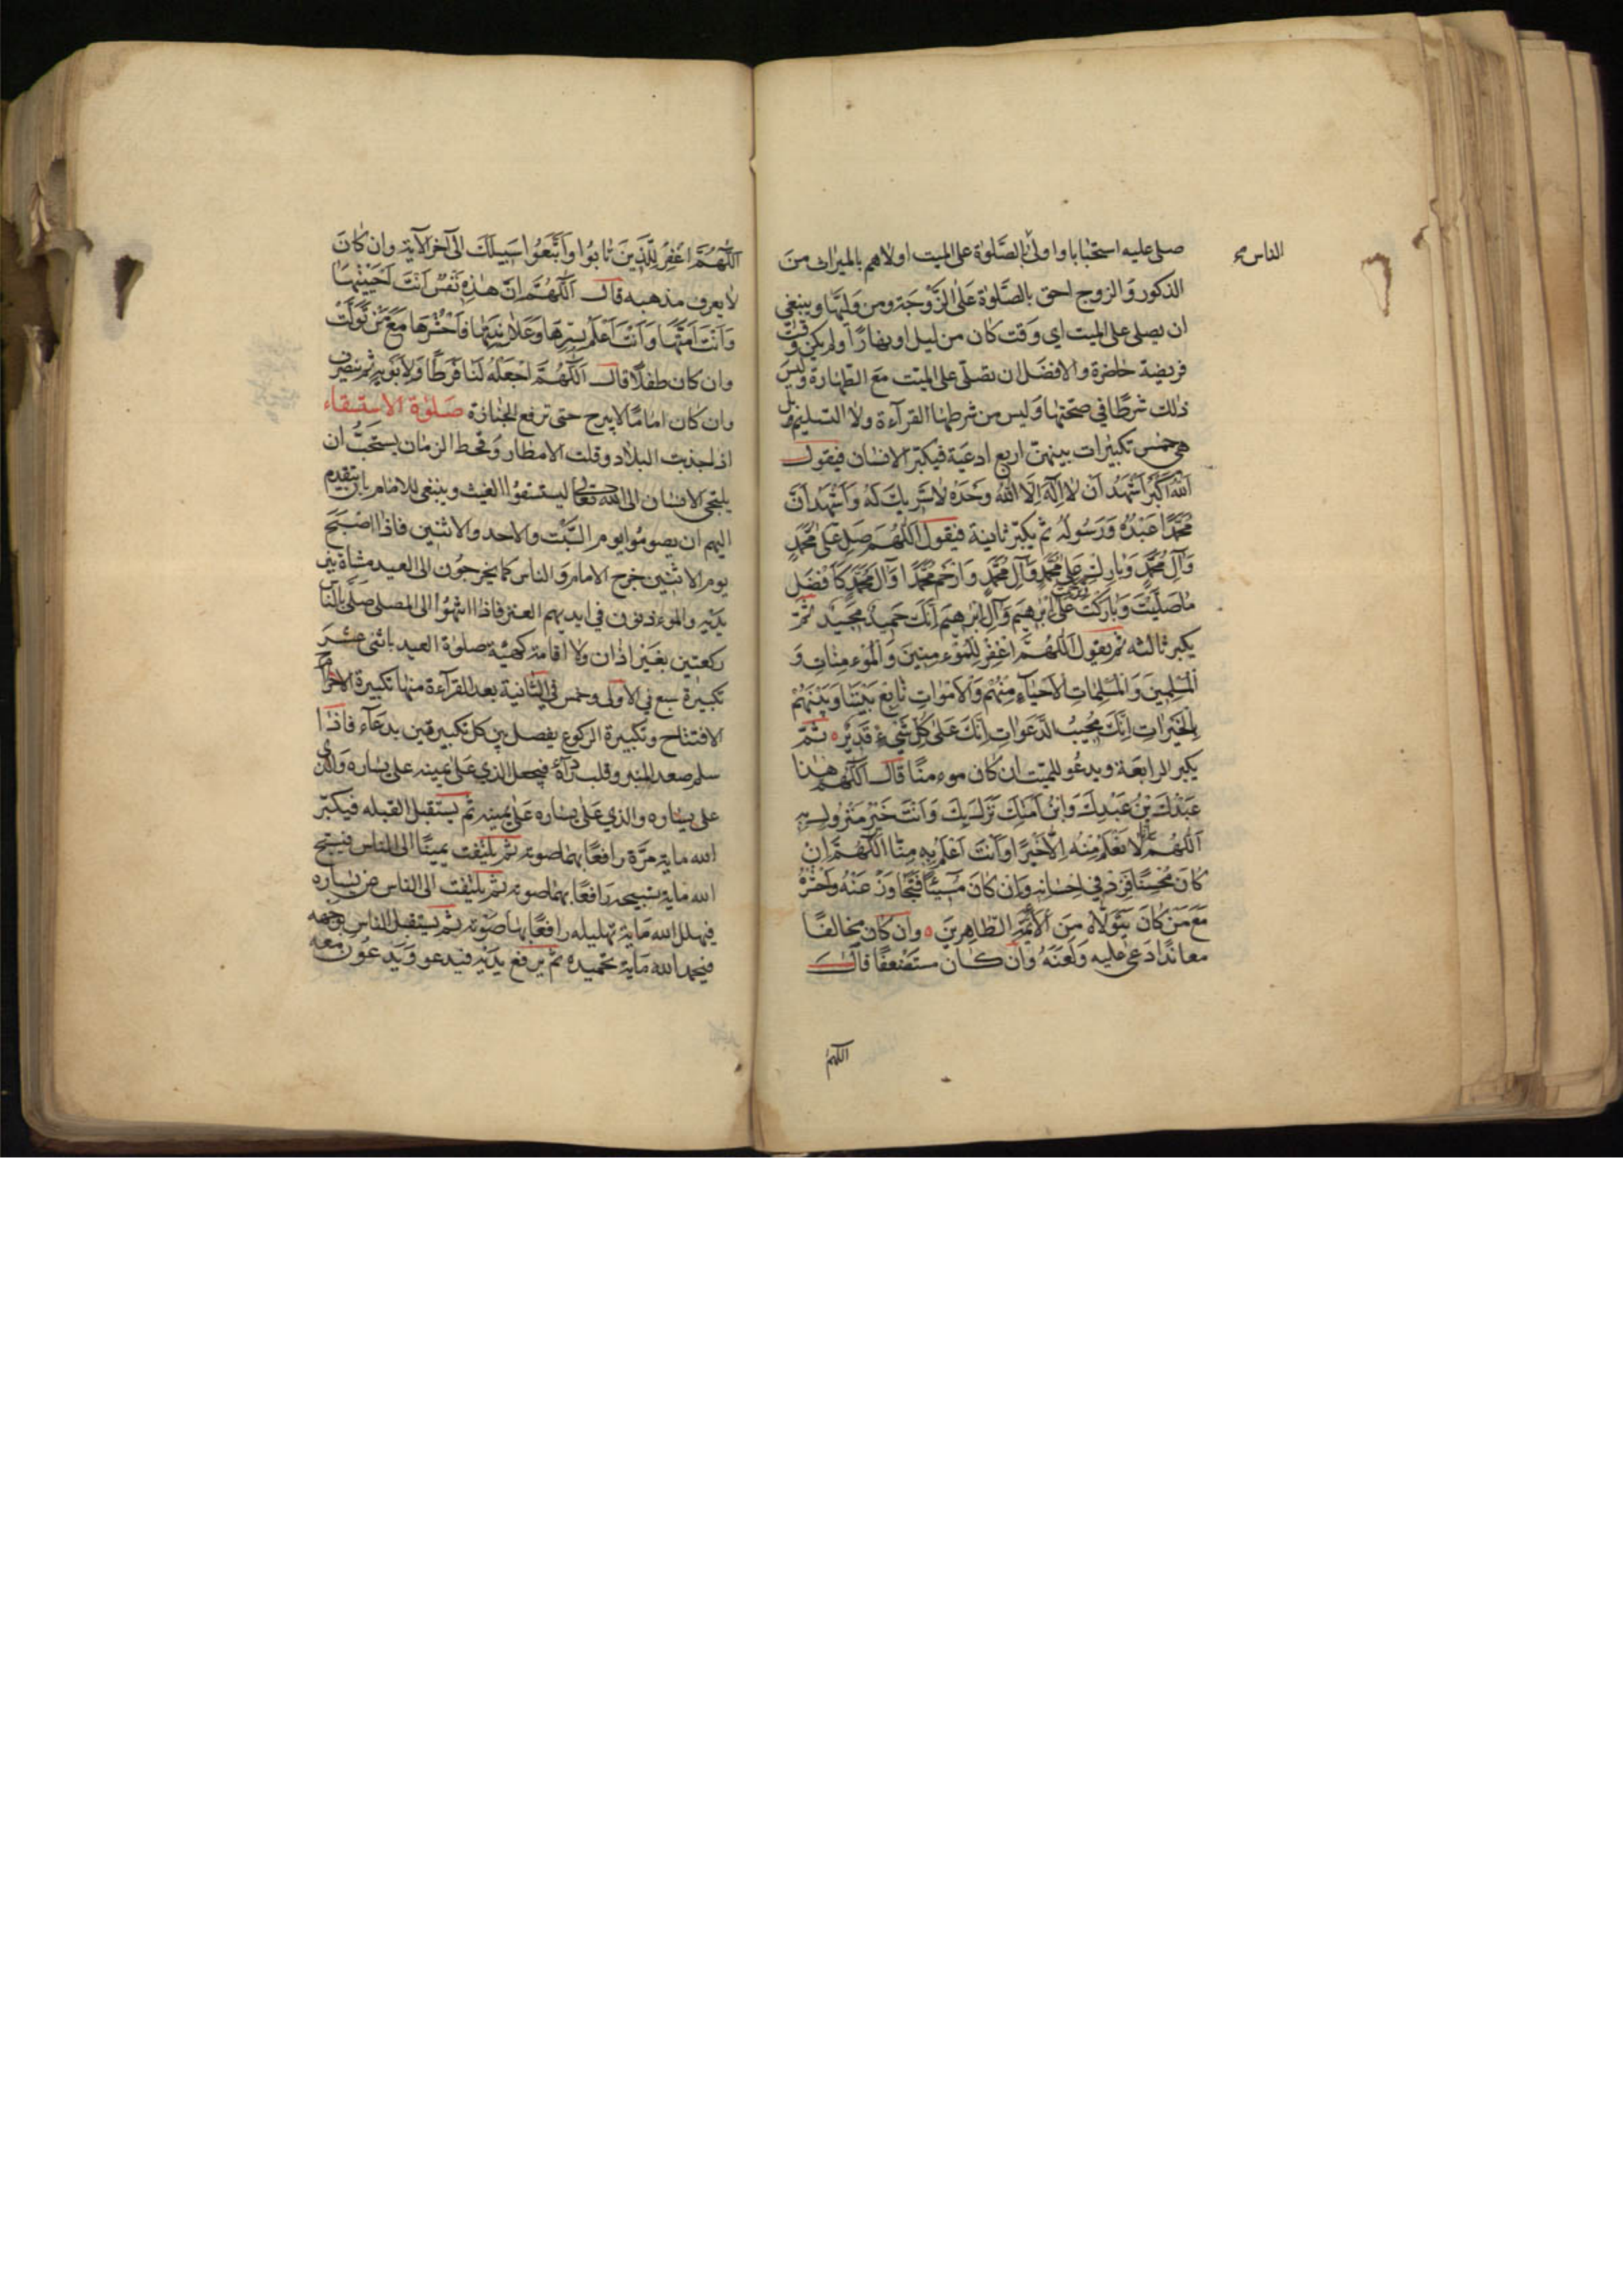 صلى عليه استحبابا واولى بالصَّلوٰة على الميت اولاهم بالميراث من
الناس صح
الذكور وَالزوج احق بالصَّلوٰة عَلَى الزَّوْجَة ومن وَلِيّها وينبغي
ان يصلى على الميت اي وَقت كان من ليل او نهارًا ولم يكن وَقت
فريضة حاضرة والافضل ان تصلّى على الميّت مَعَ الطّهارة وَليسَ
ذلك شرطًا في صحّتها وَليس من شرطها القرآءة ولا التسليم بل
هي خمس تكبيرات بينهنّ اربع ادعيَة فيكبّر الانسان فيقول
اَللّٰهُ اَكْبَرُ اَشْهَدُ اَنْ لا اِلٰهَ اِلَّا اللّٰهُ وَحْدَهُ لاشَرِيكَ لَهُ وَاَشْهَدُ اَنَّ
مُحَمَّدًا عَبْدُهُ وَرَسُولُهُ ثم يكبّر ثانية فيقول اَللّٰهُمَّ صَلِّ عَلىٰ مُحَمَّدٍ
وَآلِ مُحَمَّدٍ وَبَارِكْ عَلى مُحَمَّدٍ وَآلِ مُحَمَّدٍ وَارْحَمْ مُحَمَّدًا وَآلَ مُحَمَّدٍ كَاَفْضَلِ
مَا صَلَّيْتَ وَبَارَكْتَ عَلٰى اِبْرٰهيمَ وَآلِ اِبْرٰهيمَ اِنَّكَ حَمِيدٌ مَجِيدٌ ثمّ
يكبر ثالثه ثم يقول اَللّٰهُمَّ اغْفِرْ لِلْمُوْءمِنِينَ وَالْمُوْءمِنَاتِ وَ
اَلْمُسْلِمِينَ وَالْمُسْلِمَاتِ اَلاَحْيَآءِ مِنْهُمْ وَالاَمْوَاتِ تَابِعْ بَيْنَنَا وَبَيْنَهُمْ
بِالْخَيْرَاتِ اِنَّكَ مُجِيبُ الدَّعَوَاتِ اِنَّكَ عَلىٰ كُلِّ شَيْءٍ قَدِيرٌ ثمّ
يكبر الرابعَة ويدعُو للميّت ان كان موءمنًا قال اَللّٰهُمَّ هٰذَا
عَبْدُكَ بْنُ عَبْدِكَ وَابْنُ اَمَتِكَ نَزَلَ بِكَ وَاَنْتَ خَيْرُ مَنْزُولٍ بِهِ
اَللّٰهُمَّ اِنَّا لا نَعْلَمُ مِنْهُ اِلّا خَيْرًا وَاَنْتَ اَعْلَمُ بِهِ مِنَّا اَللّٰهُمَّ اِنْ
كَانَ مُحْسِنًا فَزِدْ فِي اِحْسَانِهِ وَاِنْ كَانَ مُسِيئًا فَتَجَاوَزْ عَنْهُ وَاحْشُرْهُ
مَعَ مَنْ كَانَ يَتَوَلَّاهُ مِنَ الاَئِمَّةِ الطّاهِرِينَ وان كان مخالفًا
معاندًا دَعى عليه وَلَعَنَهُ وان كان مستضعفًا قال
اللهم
اَللّٰهُمَّ اغْفِرْ لِلَّذِينَ تَابُوا وَاتَّبَعُوا سَبِيلَكَ الى آخر الآية وان كانَ
لا يعرف مذهبه قال اَللّٰهُمَّ اِنَّ هٰذِهِ نَفْسٌ اَنْتَ اَحْيَيْتَهَا
وَاَنْتَ اَمَتَّهَا وَاَنْتَ اَعْلَمُ بِسِرِّهَا وَعَلَانِيَتِهَا فَاحْشُرْهَا مَعَ مَنْ تَوَلَّتْ
وان كان طفلًا قال اَللّٰهُمَّ اجْعَلْهُ لَنَا فَرَطًا وَلِاَبَوَيْهِ ثم ينصرف
وان كان امامًا لايبرح حتى ترفع الجنازة صَلوٰة الاستسقاء
اذا اجذبت البلاد وقلت الامطار وَقحط الزمان يستحَبّ ان
يلتجى الانسان الى اللّه تعالى ليستسقوا الغيث وينبغى للامام بان يتقدم
اليهم ان يصومُوا يوم السَّبْت والاحد والاثنين فاذا اصْبَحَ
يوم الاثنين خرج الامام وَالناس كما يخرجُون الى العيد مشاة بين
يدَيْهِ والموءذنون في ايديهم العنز فاذا انتهوُا الى المصلى صَلَّى بالنّاس
ركعتين بغير اذان ولا اقامة كهيئة صلوٰة العيد باثنى عشر
تكبيرة سبع في الاولى وخمس في الثانية بعد القرآءة منها تكبيرة الاحرام
الافتتاح وتكبيرة الركوع يفصل بين كل تكبيرتين بدعَآء فاذا
سلم صعد المنبر وقلب ردآءهُ فيجعل الذي عَلى يمينه على يساره وَالذى
على يساره والذي عَلى يساره عَلى يمينه ثم يستقبل القبله فيكبّر
الله مايه مرّة رافعًا بهَا صوته ثم يلتفت يمينًا الى الناس فيسبّح
الله مايه تسبيحه رَافعًا بهَا صوته ثم يلتفت الى الناس من يساره
فيهلل الله مَايه تهليله رافعًا بها صَوْته ثم يستقبل الناس بوجهه
فيحمد الله مَايه تحميده ثم يرفع يدَيْه فيدعو وَيَدعوُن معه